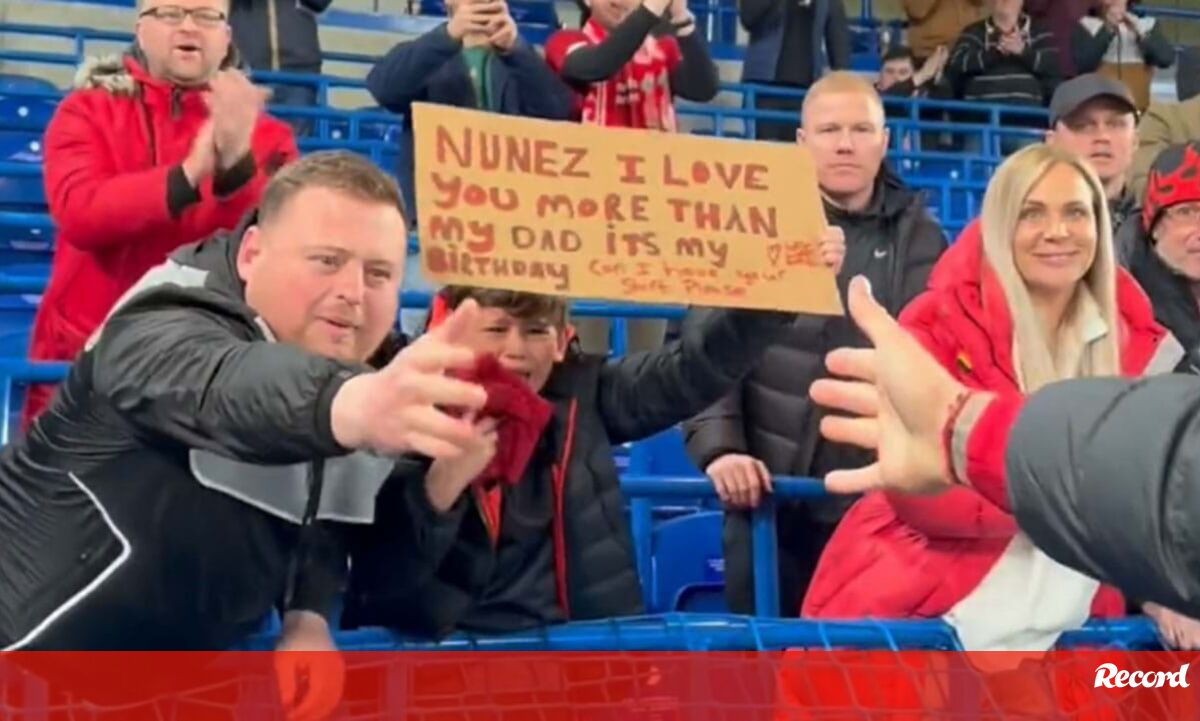 NUNEZ I LOVE
YOU MORE THAN
MY DAD ITS MY
BIRTHDAY Can I have your
Shirt Please
Record